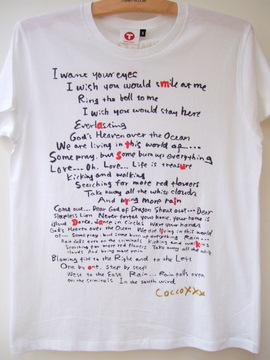 I want your eyes
I wish you would smile at me
Ring the bell to me
I wish you would stay here
Everlasting
God's Heaven over the Ocean
We are living in this world of....
Some pray. but some burn up everything
Love... Oh. Love... Life is treasure
Kicking and walking
Searching for more red flowers
Take away all the white clouds
And bring more rain
Come out... Dear God of Dragon Shout out... Dear
Sleepless Lion Never forget your home. your home is
Blood Dance. dance in circles Wave your hands
God's Heaven over the Ocean We are living in this world
of... Some pray. but some burn up everything Rain...
Rain falls even on the criminals Kicking and walking
Searching for more red flowers Take away all the white
clouds And bring more rain
Blowing fire to the Right and to the Left
One by one. step by step
West to the East Rain... Rain falls even
on the criminals In the south wind
Coccoxxx